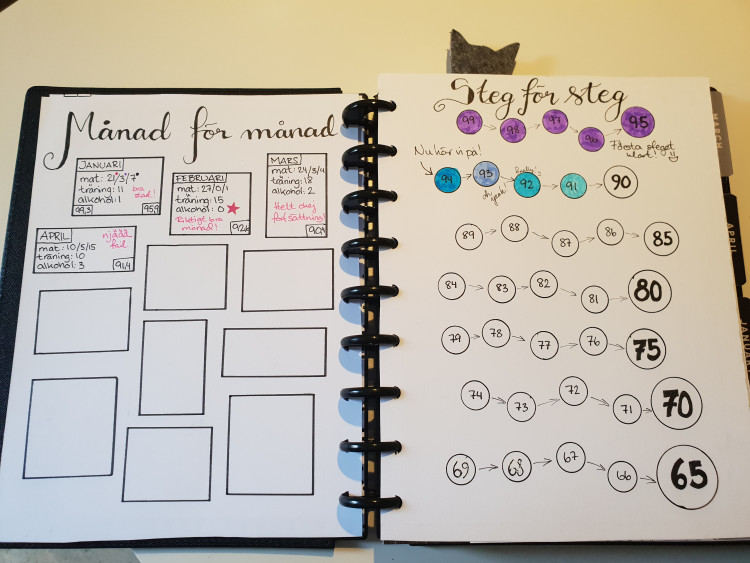 Månad för månad
JANUARI
mat: 21/3/7
träning: 11
alkohol: 1
bra
start!
99,3
95,9
FEBRUARI
mat: 27/0/1
träning: 15
alkohol: 0
Riktigt bra
månad!
MARS
mat: 24/3/4
träning: 18
alkohol: 2
Helt okej
fortsättning!
APRIL
mat: 10/5/15
träning: 10
alkohol: 3
fail
91,4
Steg för steg
99 98 97 96 95
Första steget
klart!
Nu kör vi på!
94 93 92 91 90
oh
yeah!
89 88 87 86 85
84 83 82 81 80
79 78 77 76 75
74 73 72 71 70
69 68 67 66 65
MARCH
APRIL